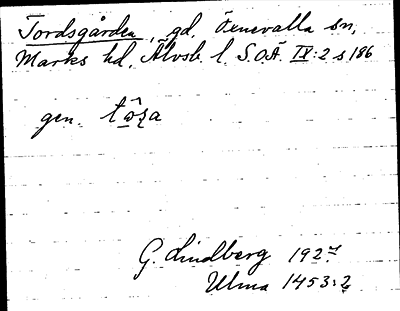 Tordsgården, gd, Öxnevalla sn,
Marks hd, Älvsb. l. S.O.Ä. IX:2 s 186
gen. tô̱ʂa
G. Lindberg 1927
Ulma 1453:2